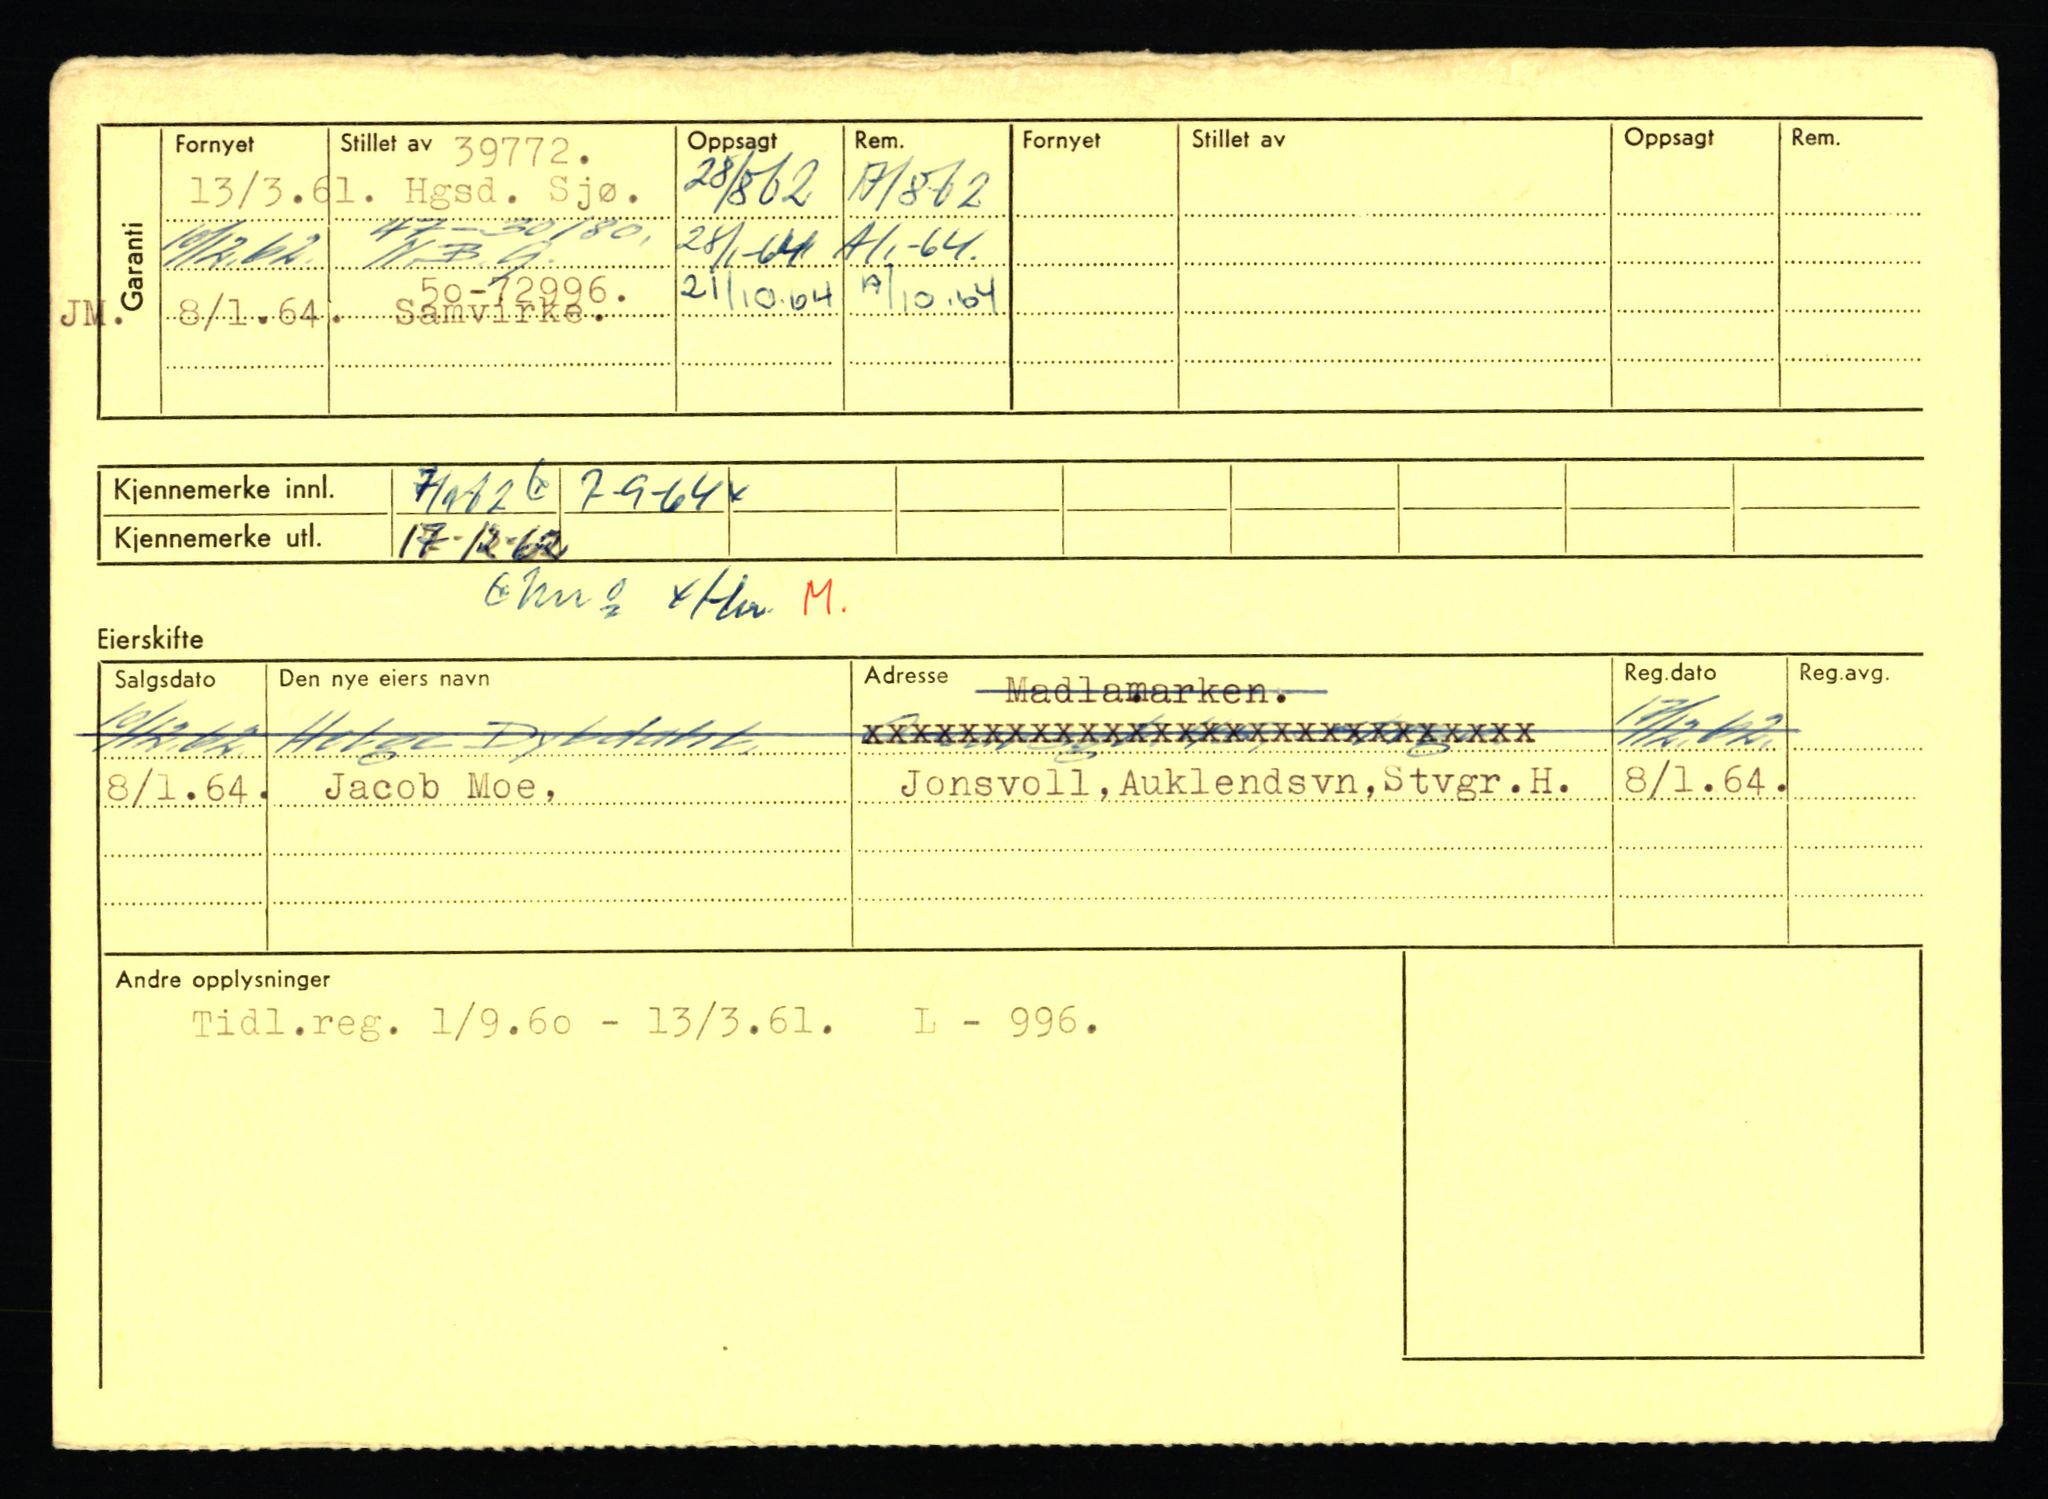 Garanti
Fornyet Stillet av 39772. Oppsagt Rem. Fornyet Stillet av Oppsagt Rem.
13/3.61. Hgsd. Sjø. 28/8 62 A/8-62
10/12.62. 47-30180. N.B.G. 28/1-64 A/1-64.
50-72996.
JM. 8/1.64. Samvirke. 21/10.64 A/10.64
Kjennemerke innl. 7/9 62 7-9-64 x
Kjennemerke utl. 17-12-62
M.
Eierskifte
Salgsdato Den nye eiers navn Adresse Madlamarken. Reg.dato Reg.avg.
10/12.62. Helge Dybdahl. xxxxxxxxxxxxxxxxxxxxxxxxxxxx 17/12.62.
8/1.64. Jacob Moe, Jonsvoll,Auklendsvn,Stvgr.H. 8/1.64.
Andre opplysninger
Tidl.reg. 1/9.60 - 13/3.61. L - 996.